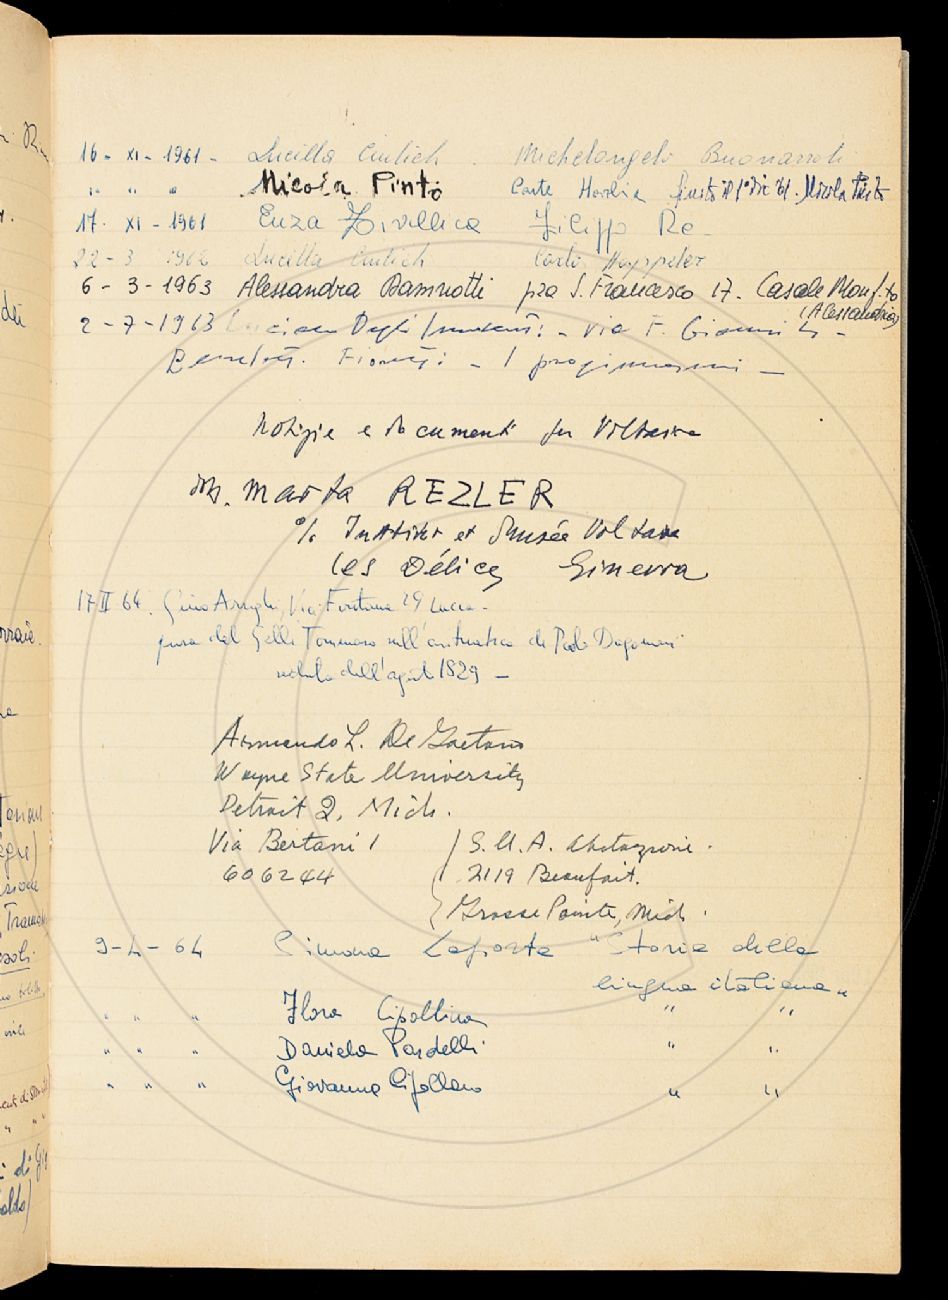 16 - XI - 1961 - Lucilla Ciulich Michelangelo Buonarroti
" " " Nicola Pinto Carte finito il 1° dic 61. Nicola Pinto
17. XI - 1961 Enza Filippo Re
22 - 3 1962 Lucilla Ciulich Carte
6 - 3 - 1963 Alessandra pza S. Francesco 17. Casale Monf.to
(Alessandria)
2 - 7 - 1963 Luciana Degli Innocenti: - via F. Gianni 4 -
Benedetto Fioretti: - I proginnasmi -
Notizie e documenti su Voltaire
Marta REZLER
c/o Institut et Musée Voltaire
Les Délices Ginevra
17 II 64. Gino Arrighi, Via Fontana 29 Lucca -
del Gelli Tommaso sull'aritmetica di Paolo Dagomari
dell' 1829 -
Armando L. De Gaetano
Wayne State University
Detroit 2, Mich.
Via Bertani 1 S.U.A. Abitazione.
606244 2119 Beaufait.
Grosse Pointe, Mich.
9 - 4 - 64 Simona Laporta "Storia della
lingua italiana"
" " " Flora Cipollina " "
" " " Daniela Pardelli " "
" " " Giovanna Cipollaro " "